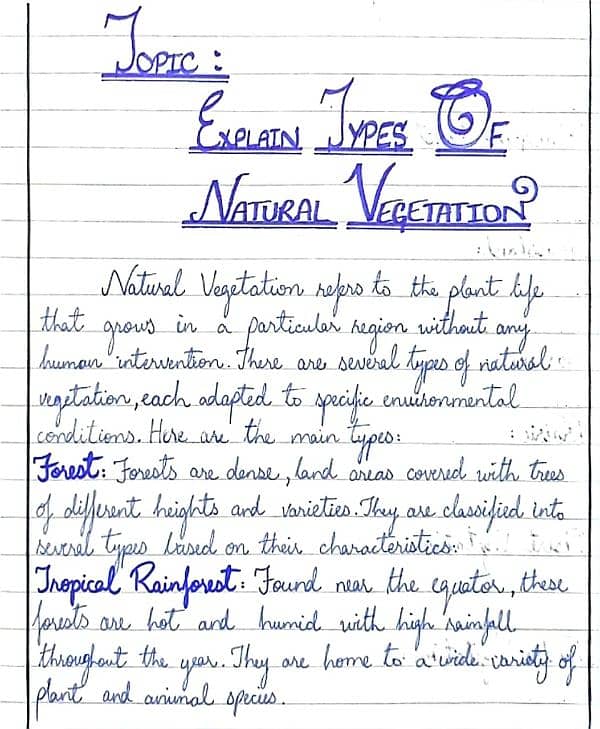 TOPIC :
EXPLAIN TYPES OF
NATURAL VEGETATION
Natural Vegetation refers to the plant life
that grows in a particular region without any
human intervention. There are several types of natural
vegetation, each adapted to specific environmental
conditions. Here are the main types:
Forest: Forests are dense, land areas covered with trees
of different heights and varieties. They are classified into
several types based on their characteristics.
Tropical Rainforest: Found near the equator, these
forests are hot and humid with high rainfall
throughout the year. They are home to a wide variety of
plant and animal species.